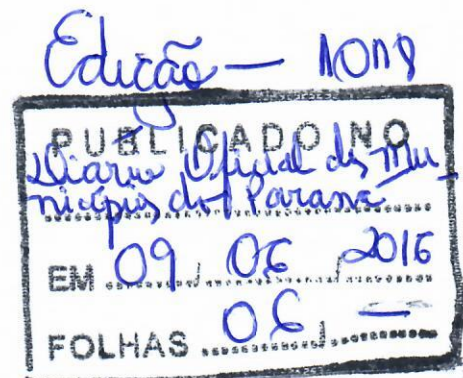 Edição —
PUBLICADO NO
Diário Oficial dos Mu-
nicípios do Paraná
EM 09 / 06 / 2016
FOLHAS 06 / —